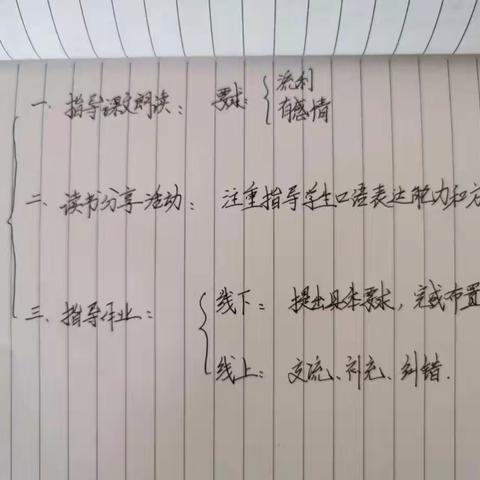 一、指导课文朗读：要求：{流利
有感情
二、读书分享活动：注重指导学生口语表达能力和方
三、指导作业：{线下：提出具体要求，完成布置
线上：交流、补充、纠错.